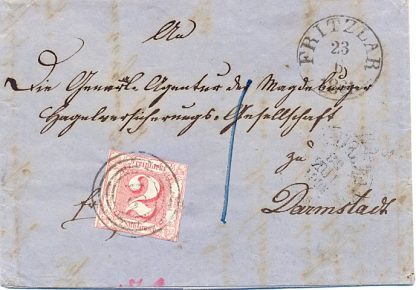 An
FRITZLAR
23
Die General-Agentur der Magdeburger
Hagelversicherungs-Gesellschaft
zu
2
fr
Darmstadt